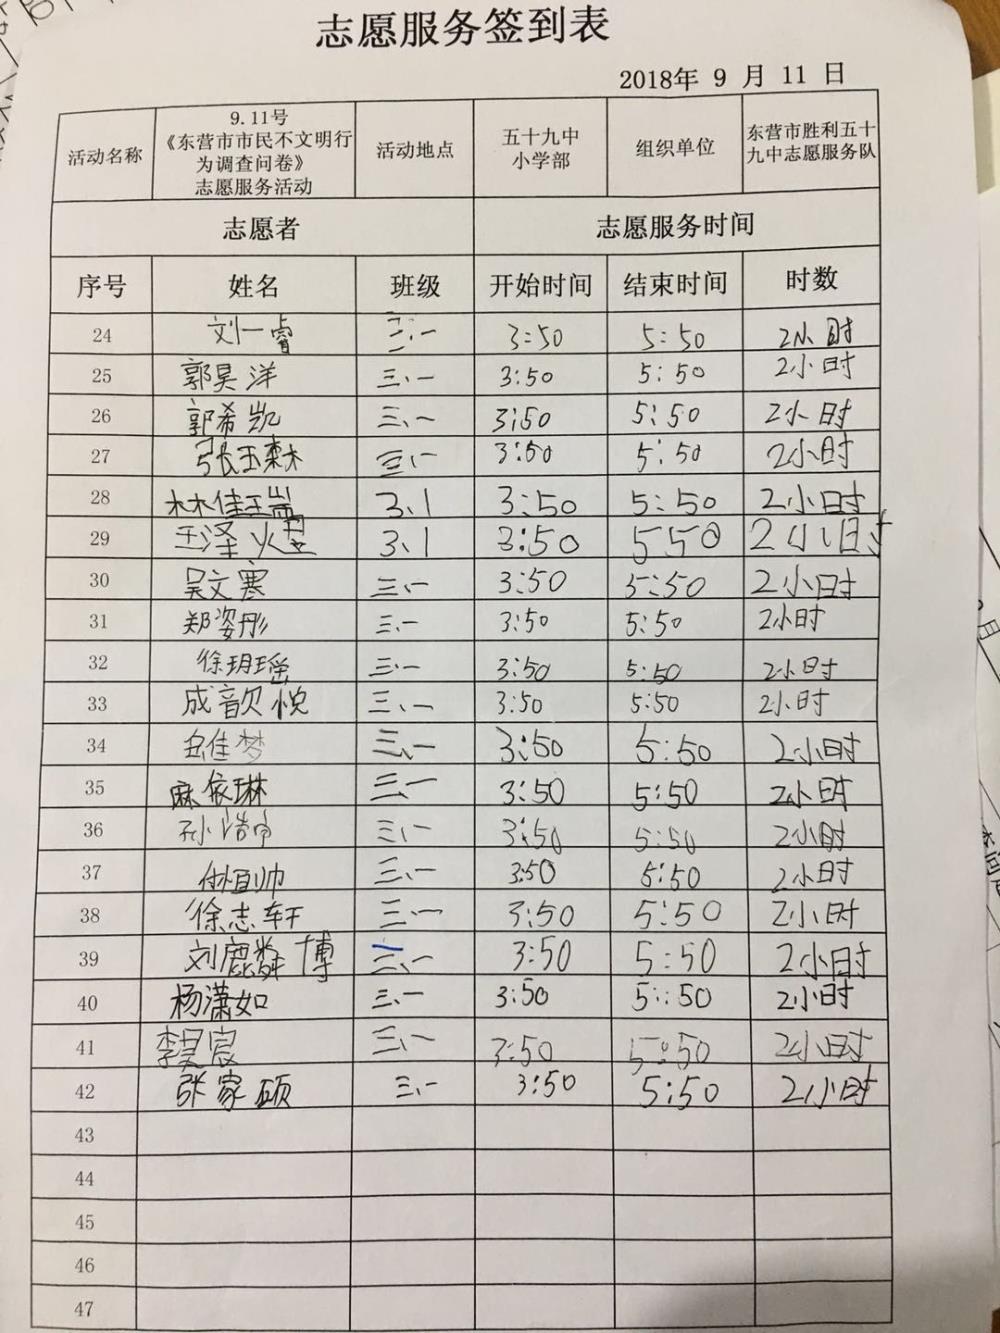 志愿服务签到表
2018年 9 月 11 日
活动名称 9.11号《东营市市民不文明行为调查问卷》志愿服务活动 活动地点 五十九中小学部 组织单位 东营市胜利五十九中志愿服务队
志愿者 志愿服务时间
序号 姓名 班级 开始时间 结束时间 时数
24 刘一睿 三.一 3:50 5:50 2小时
25 郭昊洋 三、一 3:50 5:50 2小时
26 郭希凯 三、一 3:50 5:50 2小时
27 张玉森 三、一 3:50 5:50 2小时
28 林佳 3、1 3:50 5:50 2小时
29 王泽 3、1 3:50 550 2小时
30 吴文寒 三、一 3:50 5:50 2小时
31 郑姿彤 三、一 3:50 5:50 2小时
32 徐玥瑶 三、一 3:50 5:50 2小时
33 成歆悦 三、一 3:50 5:50 2小时
34 佳梦 三、一 3:50 5:50 2小时
35 麻依琳 三、一 3:50 5:50 2小时
36 孙浩 三、一 3:50 5:50 2小时
37 恒帅 三、一 3:50 5:50 2小时
38 徐志轩 三、一 3:50 5:50 2小时
39 刘麟博 三、一 3:50 5:50 2小时
40 杨潇如 三、一 3:50 5:50 2小时
41 李昊宸 三、一 3:50 5:50 2小时
42 张家硕 三、一 3:50 5:50 2小时
43
44
45
46
47